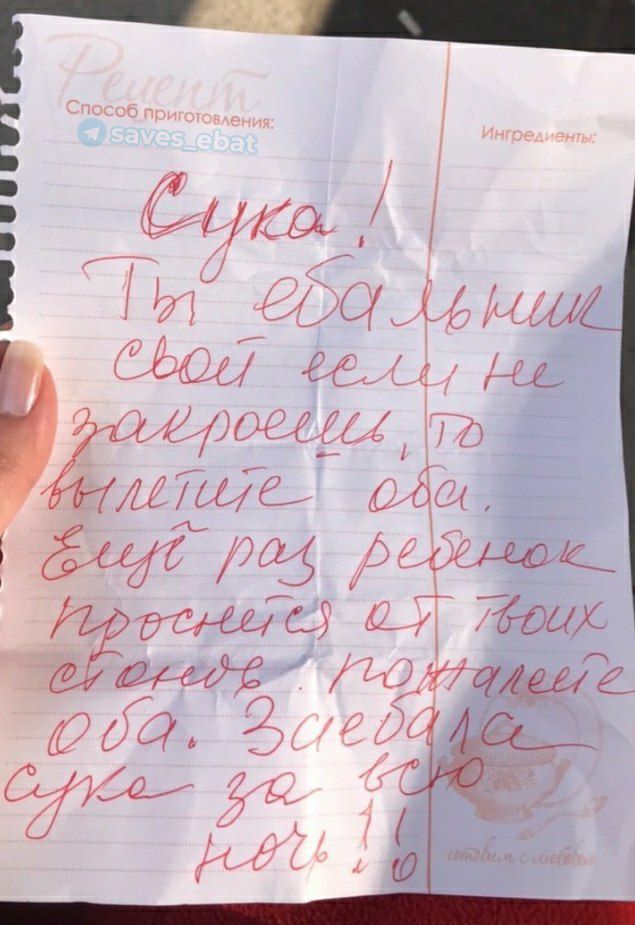 Рецепт
Способ приготовления:
Ингредиенты:
saves_ebat
Сука!
Ты ебальник
свой если не
закроешь, то
вылетите оба.
Ещё раз ребенок
проснется от твоих
стонов. пожалеете
оба. Заебала
сука за всю
ночь!!
готовим с любовью